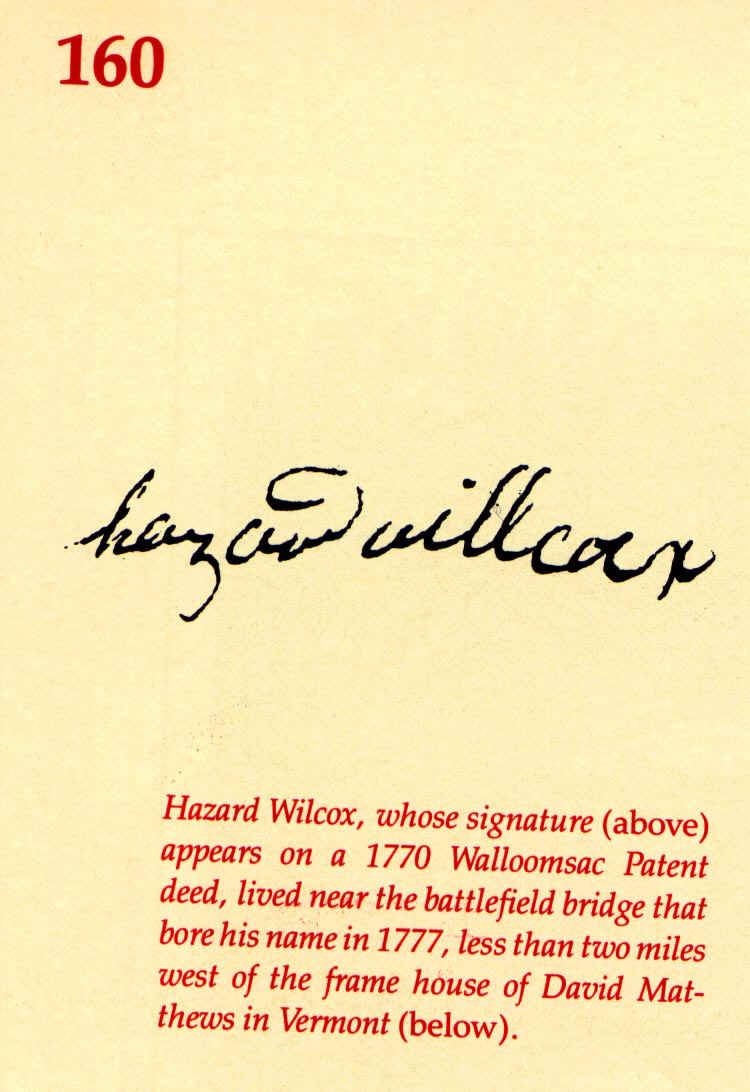 160
hazard willcox
Hazard Wilcox, whose signature (above)
appears on a 1770 Walloomsac Patent
deed, lived near the battlefield bridge that
bore his name in 1777, less than two miles
west of the frame house of David Mat-
thews in Vermont (below).